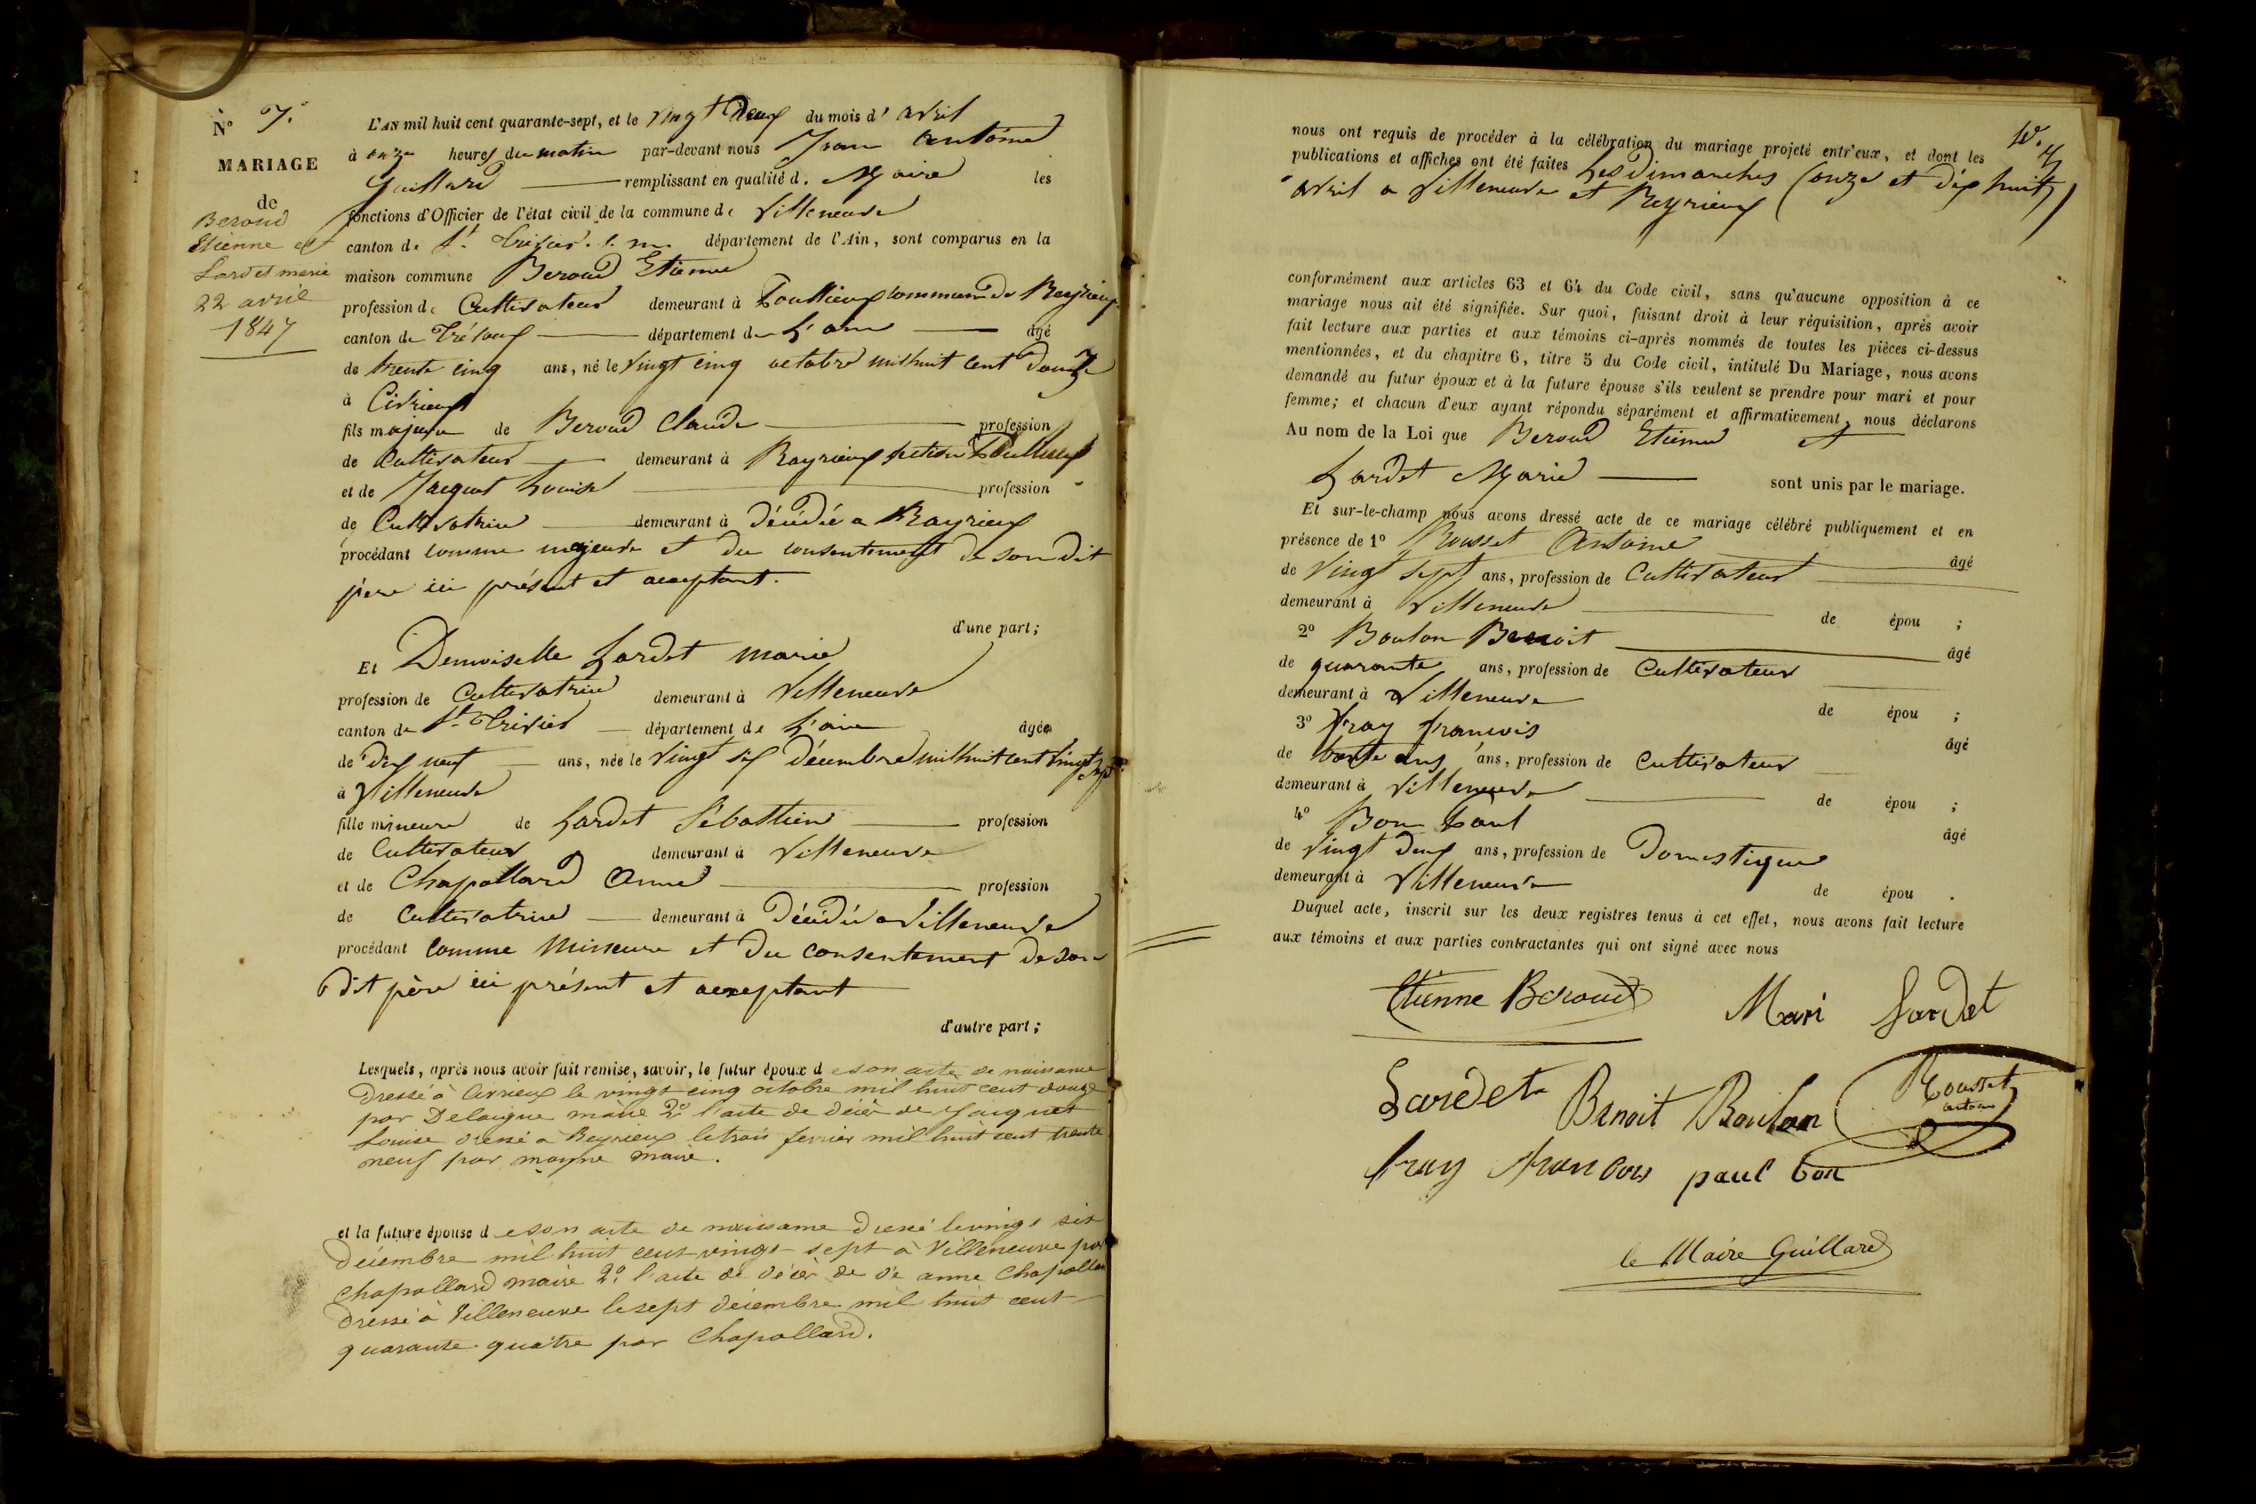 N° 7.
MARIAGE
de
Beroud
Etienne et
Lardet marie
22 avril
1847
L'AN mil huit cent quarante-sept, et le vingt deux du mois d' avril
à onze heures du matin par-devant nous Jean Antoine
Guillard remplissant en qualité d. Maire les
fonctions d'Officier de l'état civil de la commune de Villeneuve
canton de St. Trivier département de l'Ain, sont comparus en la
maison commune Beroud Etienne
profession de Cultivateur demeurant à commune de Reyrieux
canton de Trévoux département de L'ain âgé
de trente cinq ans, né le vingt cinq octobre mil huit cent douze
à Civrieux
fils majeur de Beroud Claude profession
de Cultivateur demeurant à Rayrieux
et de Jacquet Louise profession
de Cultivatrice demeurant à décédée a Rayrieux
procédant comme majeure et du consentement de son dit
père ici présent et acceptant.
d'une part;
Et Demoiselle Lardet marie
profession de Cultivatrice demeurant à Villeneuve
canton de St. Trivier département de L'ain âgée
de dix neuf ans, née le vingt six décembre mil huit cent vingt sept
à Villeneuve
fille mineure de Lardet Sébastien profession
de Cultivateur demeurant à Villeneuve
et de Chapollard Anne profession
de Cultivatrice demeurant à décédée a Villeneuve
procédant comme Mineure et du consentement de son
dit père ici présent et acceptant
d'autre part;
Lesquels, après nous avoir fait remise, savoir, le futur époux de son acte de naissance
dressé à Civrieux le vingt cinq octobre mil huit cent douze
par Delaigue maire 2° l'acte de décès de Jacquet
Louise dressé a Reyrieux le trois fevrier mil huit cent trente
neuf par mayne maire.
et la future épouse de son acte de naissance dressé le vingt six
décembre mil huit cent vingt sept à Villeneuve par
Chapollard maire 2° l'acte de décès de de anne Chapollard
dressé à Villeneuve le sept décembre mil huit cent
quarante quatre par Chapollard.
nous ont requis de procéder à la célébration du mariage projeté entr'eux, et dont les
publications et affiches ont été faites Les dimanches (onze et dix huit)
avril a Villeneuve et Reyrieux
conformément aux articles 63 et 64 du Code civil, sans qu'aucune opposition à ce
mariage nous ait été signifiée. Sur quoi, faisant droit à leur réquisition, après avoir
fait lecture aux parties et aux témoins ci-après nommés de toutes les pièces ci-dessus
mentionnées, et du chapitre 6, titre 5 du Code civil, intitulé Du Mariage, nous avons
demandé au futur époux et à la future épouse s'ils veulent se prendre pour mari et pour
femme; et chacun d'eux ayant répondu séparément et affirmativement, nous déclarons
Au nom de la Loi que Beroud Etienne et
Lardet Marie sont unis par le mariage.
Et sur-le-champ nous avons dressé acte de ce mariage célébré publiquement et en
présence de 1° Rousset Antoine âgé
de vingt sept ans, profession de Cultivateur
demeurant à Villeneuve de épou ;
2° Boulon Benoit âgé
de quarante ans, profession de Cultivateur
demeurant à Villeneuve de épou ;
3° Fray francois âgé
de ans, profession de Cultivateur
demeurant à Villeneuve de épou ;
4° Bon Paul âgé
de vingt deux ans, profession de Domestique
demeurant à Villeneuve de épou .
Duquel acte, inscrit sur les deux registres tenus à cet effet, nous avons fait lecture
aux témoins et aux parties contractantes qui ont signé avec nous
Etienne Beroud Mari Lardet
Lardet Benoit Boulon Rousset
antoine
fray francois paul bon
le Maire Guillard